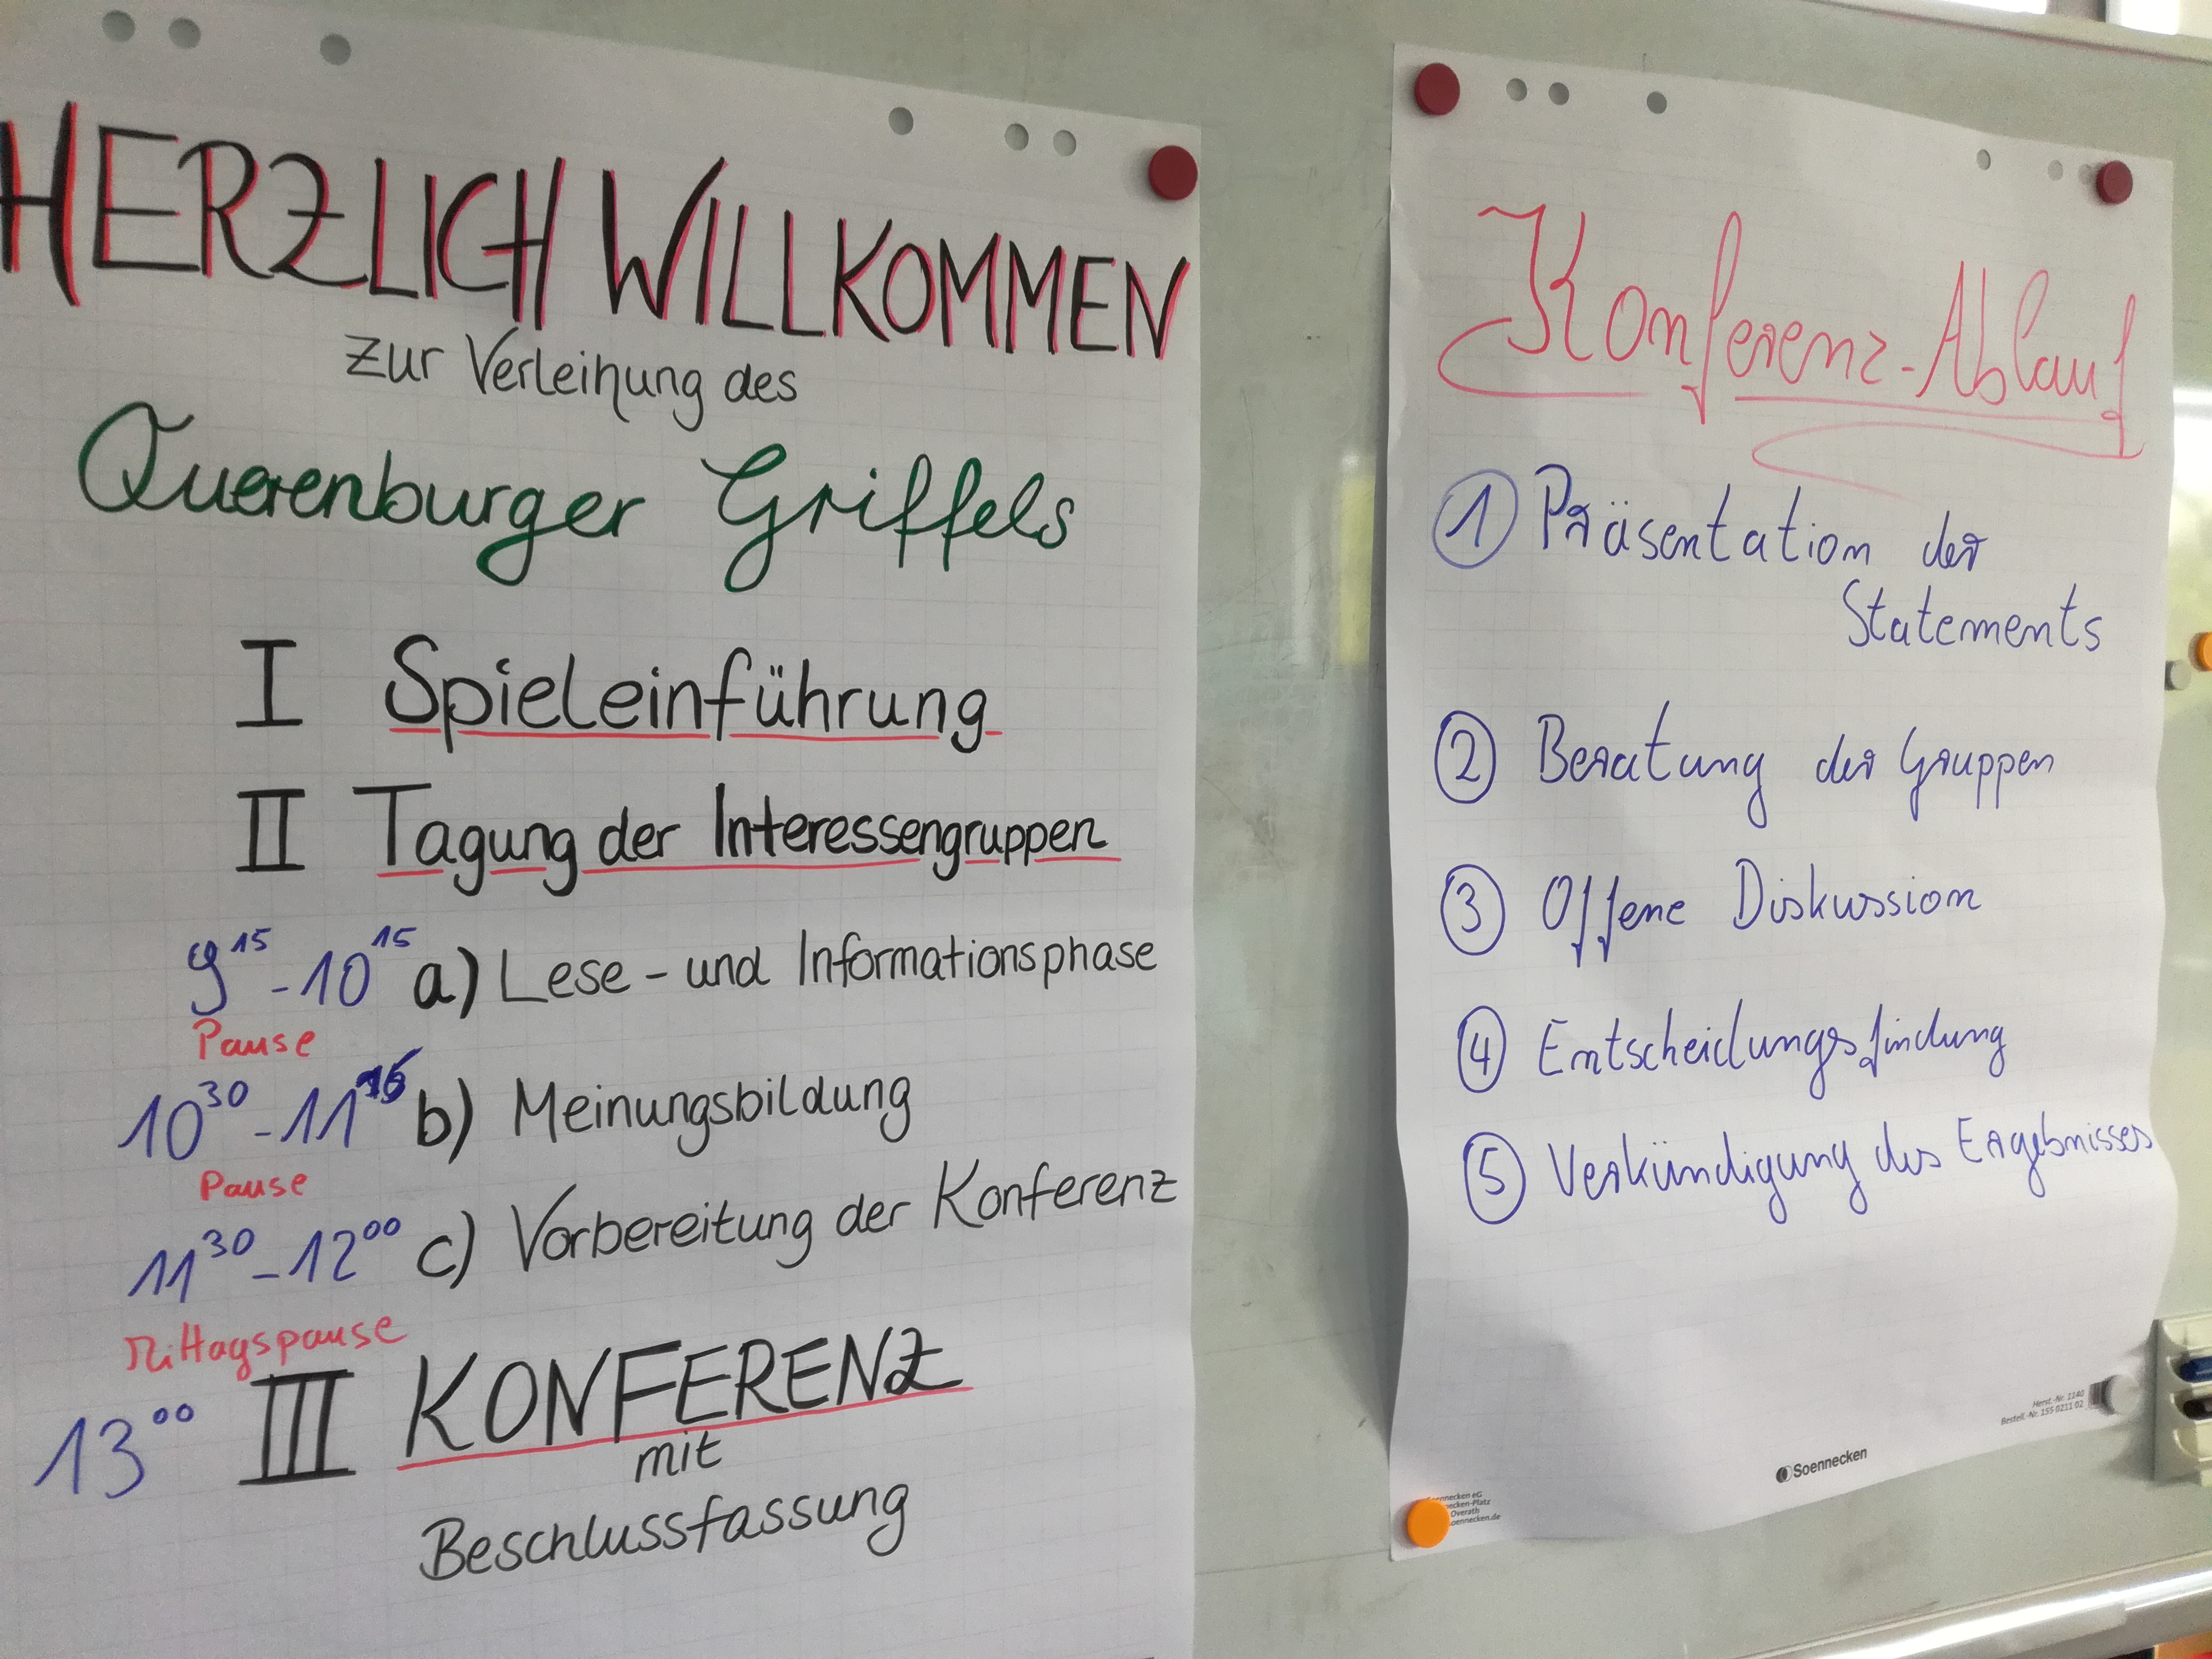 HERZLICH WILLKOMMEN
zur Verleihung des
Querenburger Griffels
I Spieleinführung
II Tagung der Interessengruppen
9 15 - 10 15 a) Lese- und Informationsphase
Pause
10 30 - 11 b) Meinungsbildung
Pause
11 30 - 12 00 c) Vorbereitung der Konferenz
Mittagspause
13 00 III KONFERENZ
mit
Beschlussfassung
Konferenz-Ablauf
1 Präsentation der
Statements
2 Beratung der Gruppen
3 Offene Diskussion
4 Entscheidungsfindung
5 Verkündigung des Ergebnisses
Herst.-Nr. 1140
Bestell.-Nr. 155 0211 02
Soennecken
eG
Overath